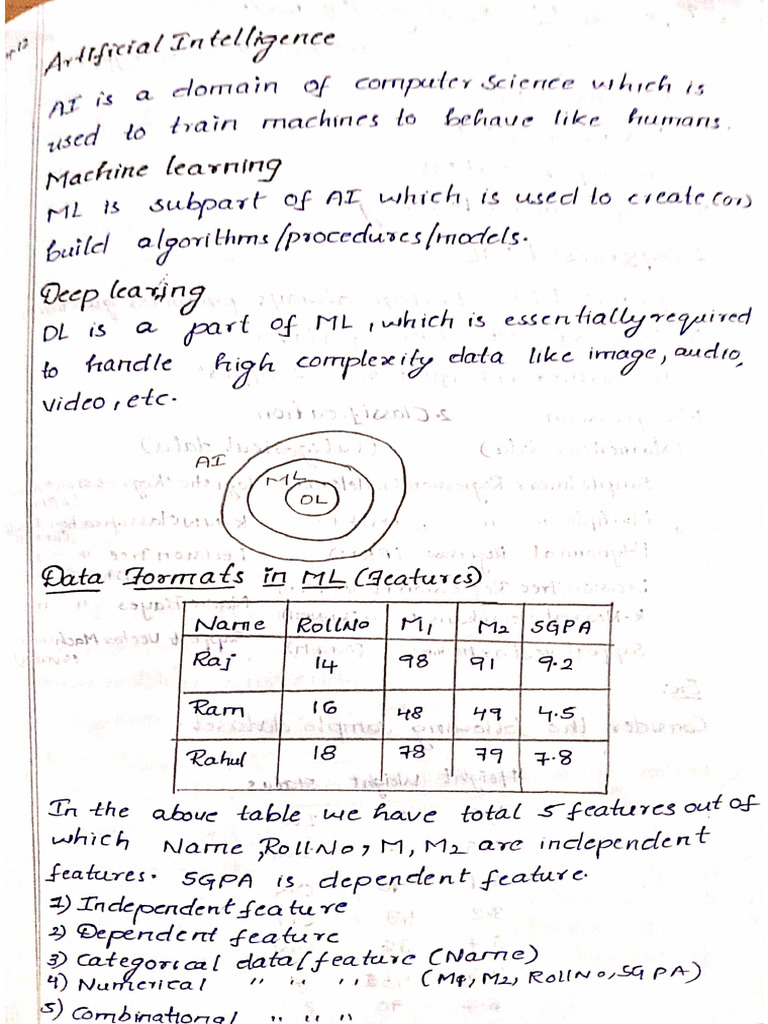 Artificial Intelligence
AI is a domain of computer science which is
used to train machines to behave like humans.
Machine learning
ML is subpart of AI which, is used to create (or)
build algorithms/procedures/models.
Deep learing
DL is a part of ML, which is essentially required
to handle high complexity data like image, audio,
video, etc.
AI
ML
DL
Data Formats in ML (Features)
Name RollNo M1 M2 SGPA
Raj 14 98 91 9.2
Ram 16 48 49 4.5
Rahul 18 78 79 7.8
In the above table we have total 5 features out of
which Name, RollNo, M, M2 are independent
features. SGPA is dependent feature.
1) Independent feature
2) Dependent feature
3) Categorical data/feature (Name)
4) Numerical " " " (M1, M2, RollNo, SGPA)
5) Combinational " " "